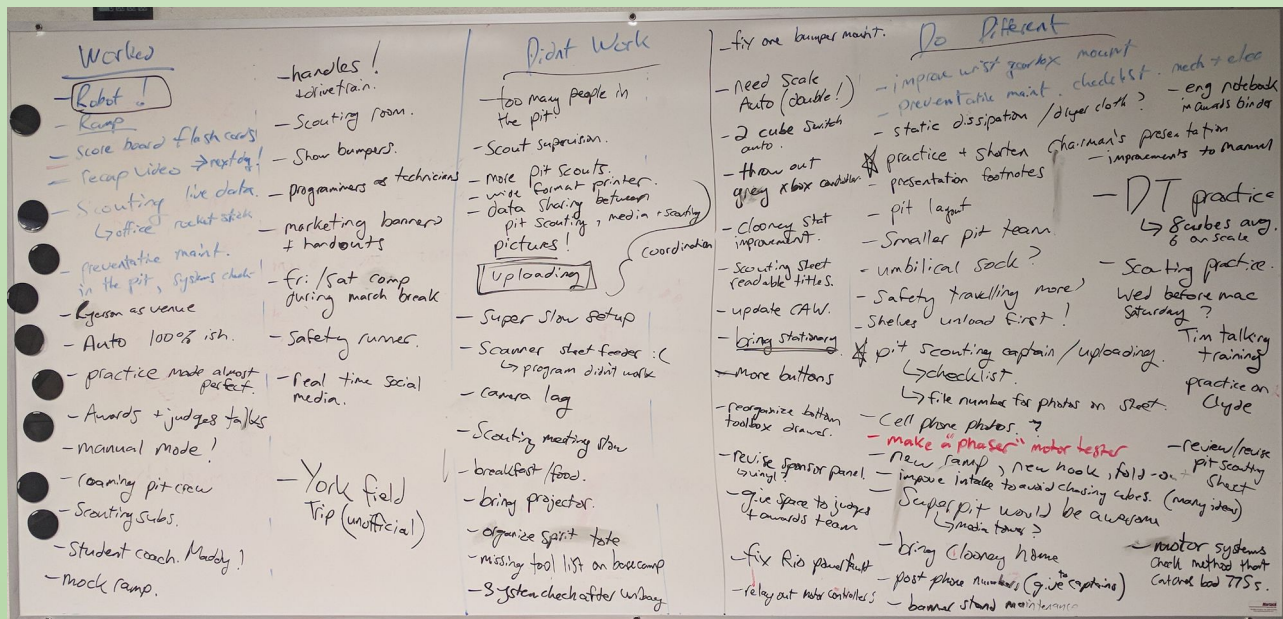 Worked
- Robot!
- Ramp
- Score board flash cards!
- recap video → nextday!
- Scouting live data.
↳ office rocket stick
- preventative maint.
in the pit, systems check
- Ryerson as venue
- Auto 100% ish.
- practice made almost
perfect.
- Awards + judges talks
- manual mode!
- roaming pit crew
- Scouting subs.
- Student coach. Maddy!
- mock ramp.
- handles!
+ drivetrain.
- Scouting room.
- Show bumpers.
- programmers as technicians
- marketing banners
+ handouts
- fri/sat comp
during march break
- Safety runner.
- real time social
media.
- York field
Trip (unofficial)
Didnt Work
- too many people in
the pit!
- Scout supervision.
- more pit scouts.
- wide format printer.
- data sharing between
pit scouting, media + scouting
pictures!
uploading
coordination
- Super slow setup
- Scanner sheet feeder :(
↳ program didn't work
- camera lag
- Scouting meeting slow
- breakfast/food.
- bring projector.
- organize spirit tote
- missing tool list on basecamp
- System check after unbag
- fix one bumper mount.
- need Scale
Auto (double!)
- 2 cube switch
auto.
- throw out
grey xbox controller
- Clooney stat
improvement.
- Scouting sheet
readable titles.
- update CAW.
- bring stationary
- More buttons
- reorganize bottom
toolbox drawer.
- revise sponsor panel.
↳ vinyl?
- give space to judges
+ awards team
- fix Rio power fault
- relay out motor controllers
Do Different
- improve wrist gearbox mount
- preventative maint. checklist. mech + elec
- static dissipation / dryer cloth?
☆ practice + shorten Chairman's presentation
- presentation footnotes
- pit layout
- Smaller pit team.
- umbilical sock?
- Safety travelling more?
- Shelves unload first!
☆ pit scouting captain/uploading.
↳ checklist.
↳ file number for photos on sheet.
- Cell phone photos.?
- make a "phaser" motor tester
- new ramp, new hook, fold-out
- improve intake to avoid chasing cubes. (many ideas)
- Superpit would be awesome
↳ media tower?
- bring Clooney home
- post phone numbers (give to captains)
- banner stand maintenance
- eng notebook
in awards binder
- improvements to manual
- DT practice
↳ 8 cubes avg.
6 on scale
- Scouting practice.
Wed before mac
Saturday?
Tim talking
training
practice on
Clyde
- review/revise
pit scouting
Sheet
- motor systems
check method that
catches bad 775s.